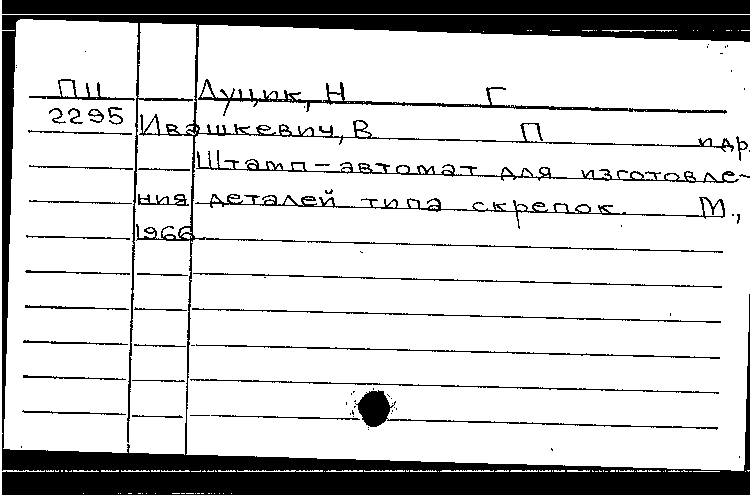 ПШ Луцик, Н Г
2295 Ивашкевич, В П и др.
Штамп-автомат для изготовле-
ния деталей типа скрепок. М.,
1966